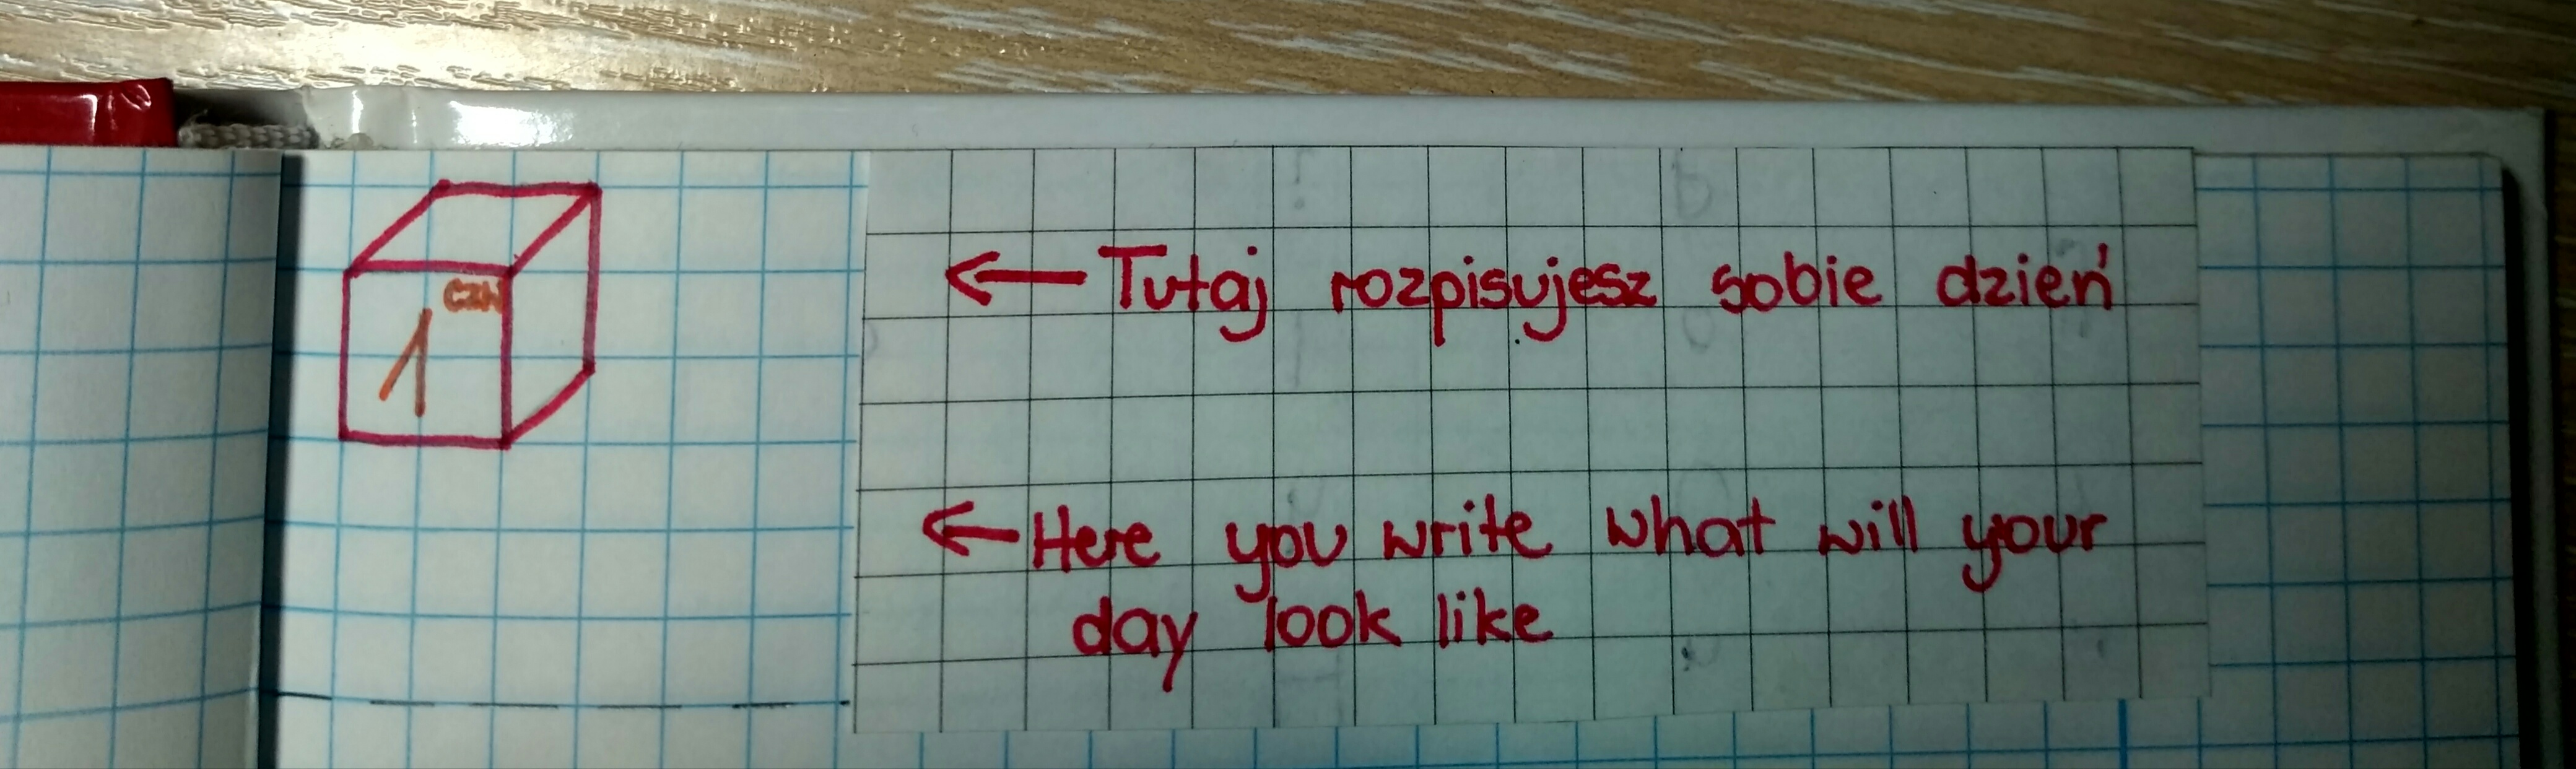 CZW
1
← Tutaj rozpisujesz sobie dzień
← Here you write what will your
day look like